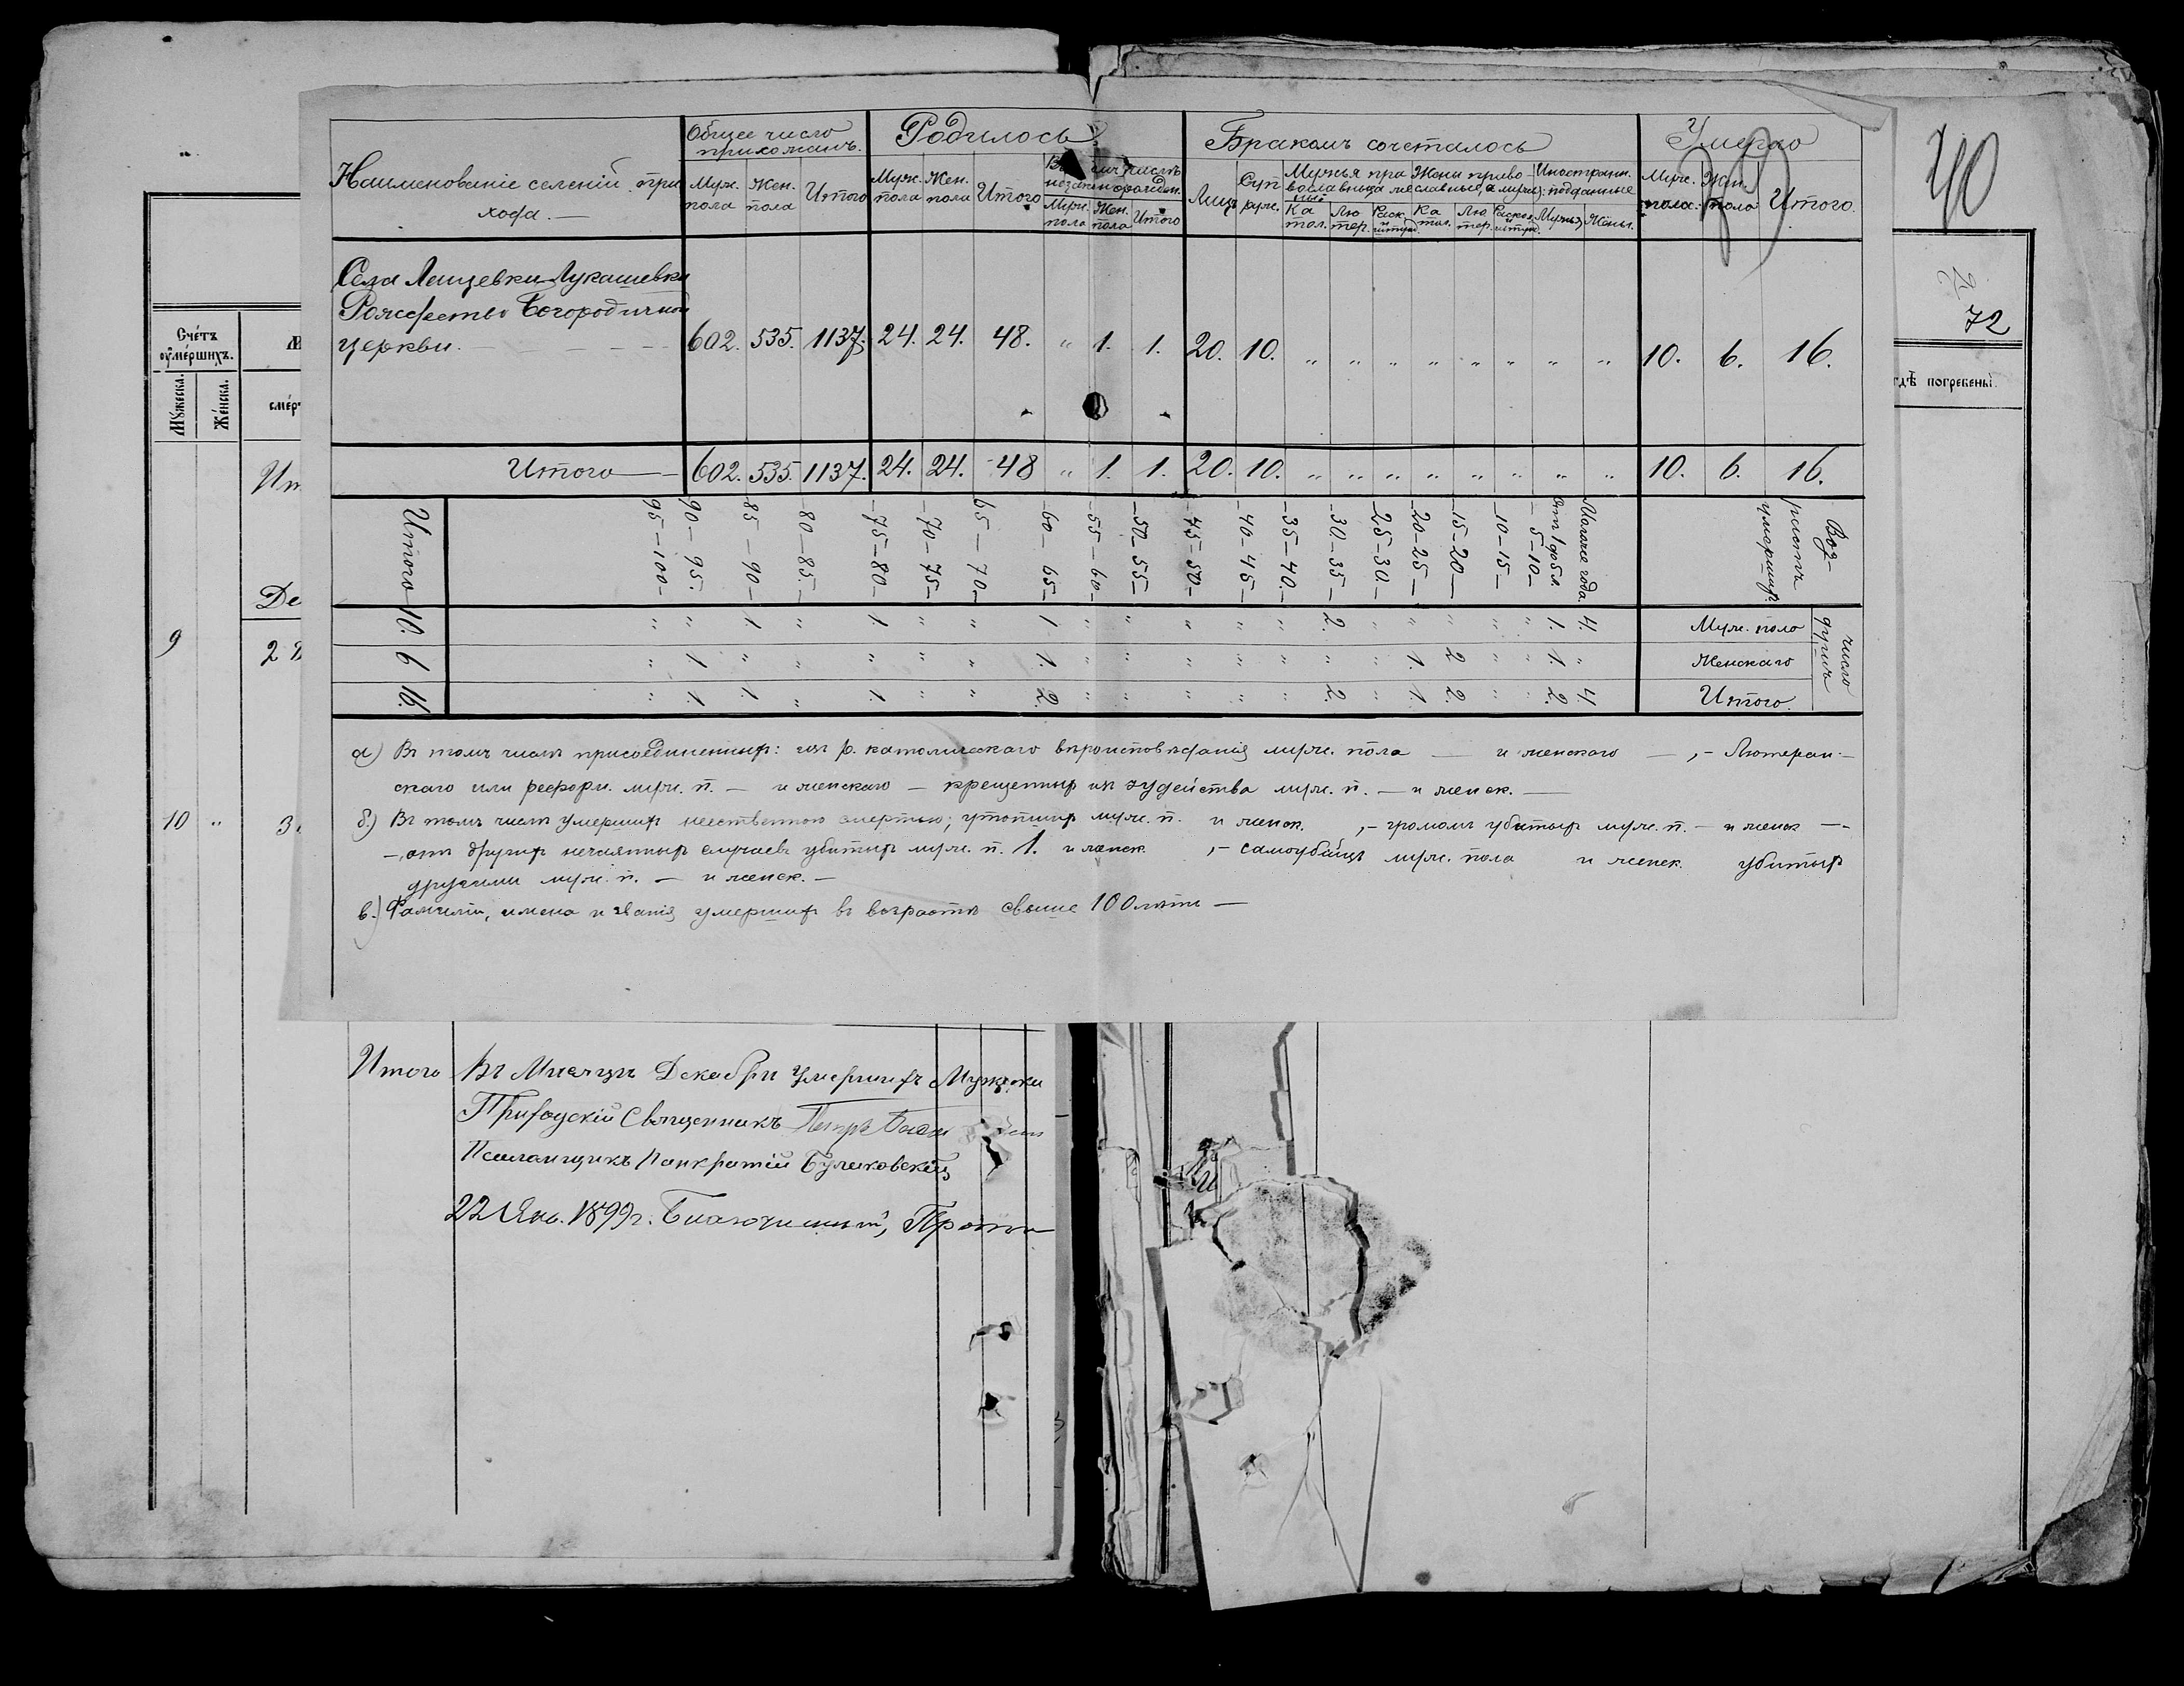 40
72
Счетъ оумершихъ.
Мужеска.
Женска.
гдѣ погребены.
Наименованіе селеній при-
хода. —
Общее число прихожанъ.
Муж. пола
Жен. пола
Итого
Родилось
Муж. пола
Жен. пола
Итого
Муж. пола
Жен. пола
Итого
Бракомъ сочеталось
Лицъ
Суп руж.
Ка тол.
Лю тер.
Ка тол.
Лю тер.
Иностранн. подданные
Мужья
Жены.
Умерло
Муж. пола.
Жен. пола
Итого.
Села Лещевки-Лукашевки
Рождество Богородичной
церкви. — 602. 535. 1137. 24. 24. 48. „ 1. 1. 20. 10. „ „ „ „ „ „ „ „ 10. 6. 16.
Итого — 602. 535. 1137. 24. 24. 48 „ 1. 1. 20. 10. „ „ „ „ „ „ „ „ 10. 6. 16.
Итого 95-100- 90-95. 85-90- 80-85. 75-80- 70-75- 65-70- 60-65- 55-60- 50-55- 45-50- 40-45- 35-40- 30-35- 25-30- 20-25- 15-20- 10-15- 5-10- Отъ 1 до 5 л. Младше года. Воз-растъ умершихъ.
10. „ „ 1. „ 1. „ „ 1 „ „ „ „ „ 2. „ „ „ „ „ 1. 4. Муж. пола
6 „ 1. „ „ „ „ „ 1. „ „ „ „ „ „ „ 1. 2 „ „ 1. „ Женскаго
16. „ 1. 1. „ 1. „ „ 2. „ „ „ „ „ 2. „ 1. 2. „ „ 2. 4. Итого.
число другихъ
а) Въ томъ числѣ присоединенныхъ: изъ р. католическаго вѣроисповѣданія муж. пола — и женскаго —, – Лютеран-
скаго или реформ. муж. п. — и женскаго — крещенныхъ изъ іудейства муж. п. — и женск. —
б.) Въ томъ числѣ умершихъ неестественною смертью; утопшихъ муж. п. и женск. , – громомъ убитыхъ муж. п. — и женск —
–, отъ другихъ нечаянныхъ случаевъ убитыхъ муж. п. 1. и женск. , – самоубійцъ муж. пола и женск. убитыхъ
другими муж. п. — и женск. —
в.) Фамиліи, имена и званія умершихъ въ возрастѣ свыше 100 лѣтъ —
9
2
10 „ 3
Итого Въ Мѣсяцѣ Декабрѣ умершихъ Мужеска
Приходскій Священникъ Петръ
Псаломщикъ Панкратій Булаковскій
22 Янв. 1899 г. Благочинный, Прото